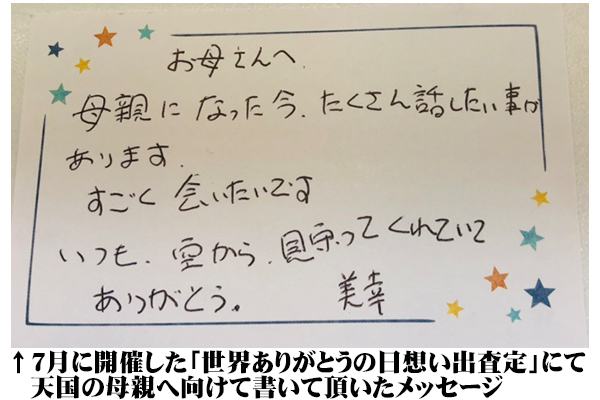 お母さんへ.
母親になった今、たくさん話したい事が
あります.
すごく会いたいです
いつも、空から、見守ってくれていて
ありがとう。 美幸
↑7月に開催した「世界ありがとうの日想い出査定」にて
天国の母親へ向けて書いて頂いたメッセージ